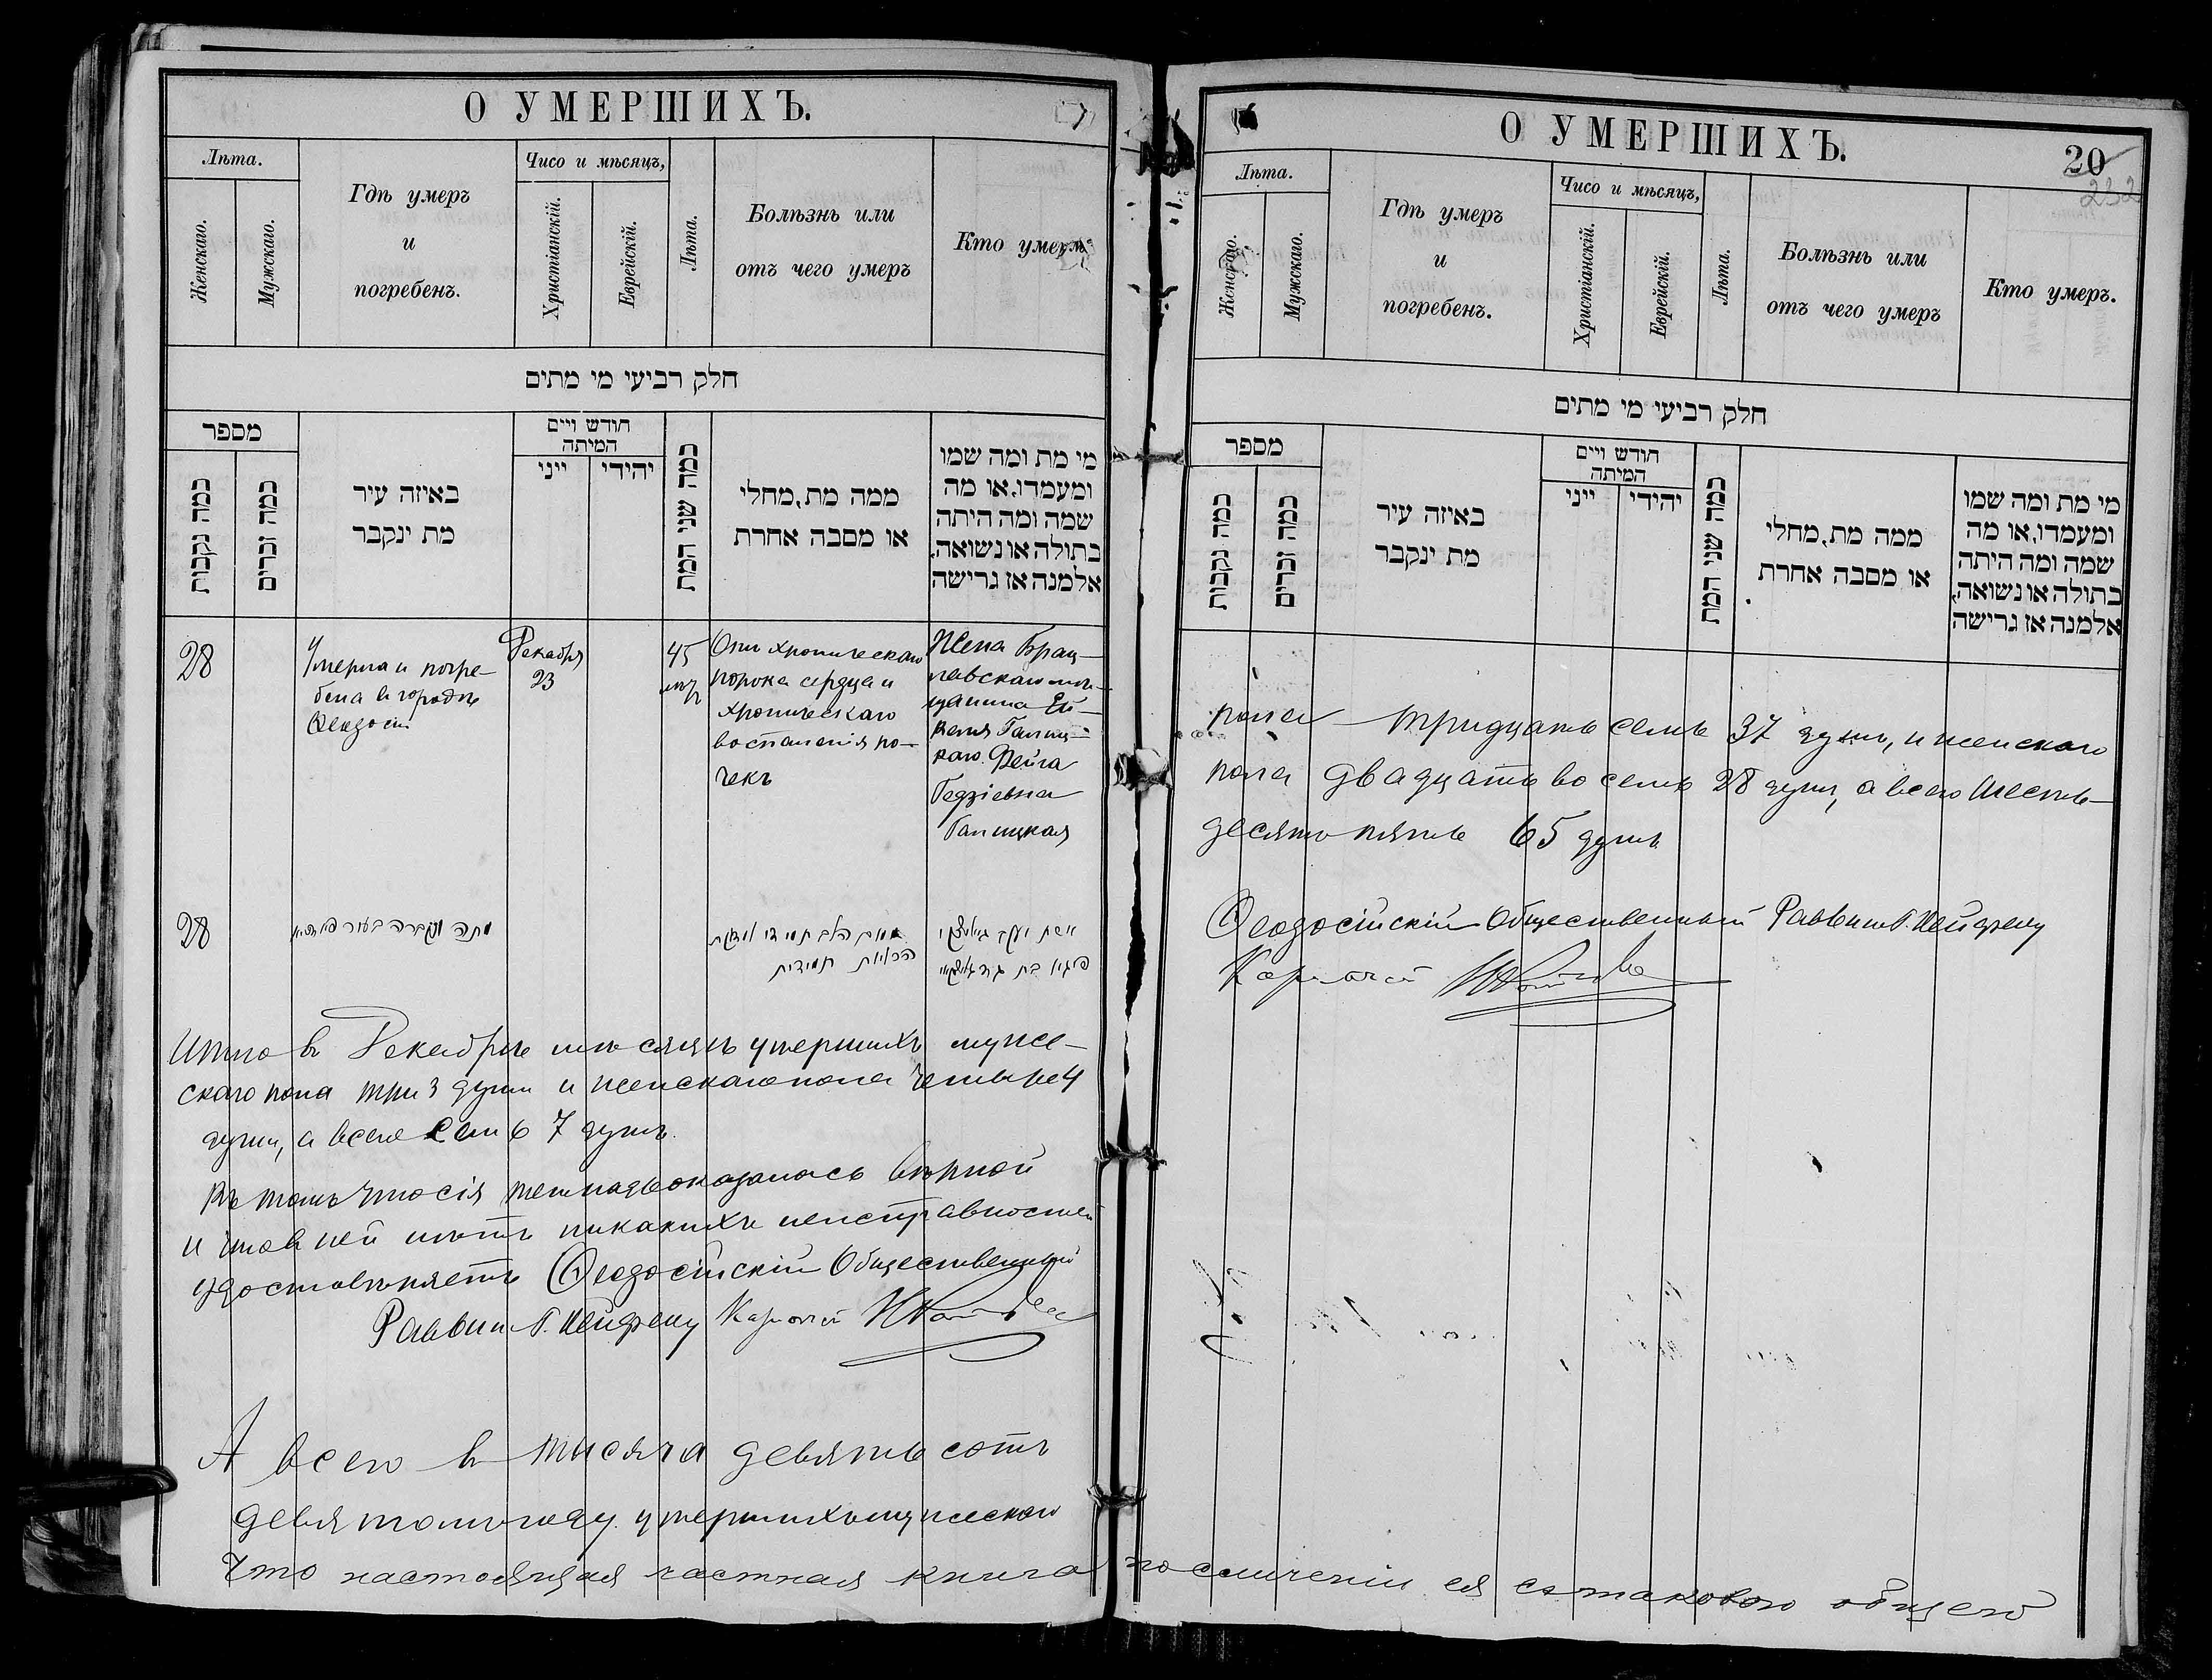 О УМЕРШИХЪ.
Лѣта.
Женскаго.
Мужскаго.
Гдѣ умеръ
и
погребенъ.
Чисо и мѣсяцъ,
Христіанскій.
Еврейскій.
Лѣта.
Болѣзнь или
отъ чего умеръ
Кто умеръ.
חלק רביעי מי מתים
מספר
כמה נקבות
כמה זכרים
באיזה עיר
מת ינקבר
חודש ויים
המיתה
ייני
יהידי
כמה שני המת
ממה מת,מחלי
או מסבה אחרת
מי מת ומה שמו
ומעמדו,או מה
שמה ומה היתה
בתולה או נשואה,
אלמנה אז גרישה
28
Умерла и погре-
бена въ городѣ
Ѳеодосіи
Декабря
23
45
лѣтъ
Отъ хроническаго
порока сердца и
хроническаго
воспаленія по-
чекъ
Жена Брац-
лавскаго мѣ-
щанина
Галиц-
каго. Фейга
Галицкая
28
מתה ונקברה בעיר
Итого въ Декабрѣ мѣсяцѣ умершихъ муже-
скаго пола три 3 души и женскаго пола четыре 4
души, а всего семь 7 душъ.
Въ томъ что сія тетрадь оказалась вѣрной
и что въ ней нѣтъ никакихъ неисправностей
удостовѣряетъ Ѳеодосійскій Общественный
Раввинъ
А всего въ тысяча девятьсотъ
девятомъ году умершихъ мужескаго
Что настоящая частная книга по сличеніи ея съ таковою общею
О УМЕРШИХЪ.
20
232
Лѣта.
Женскаго.
Мужскаго.
Гдѣ умеръ
и
погребенъ.
Чисо и мѣсяцъ,
Христіанскій.
Еврейскій.
Лѣта.
Болѣзнь или
отъ чего умеръ
Кто умеръ.
חלק רביעי מי מתים
מספר
כמה נקבות
כמה זכרים
באיזה עיר
מת ינקבר
חודש ויים
המיתה
ייני
יהידי
כמה שני המת
ממה מת,מחלי
או מסבה אחרת
מי מת ומה שמו
ומעמדו,או מה
שמה ומה היתה
בתולה או נשואה,
אלמנה אז גרישה
пола тридцать семь 37 душъ, и женскаго
пола двадцать восемь 28 душъ, а всего шесть-
десятъ пять 65 душъ
Ѳеодосійскій Общественный Раввинъ